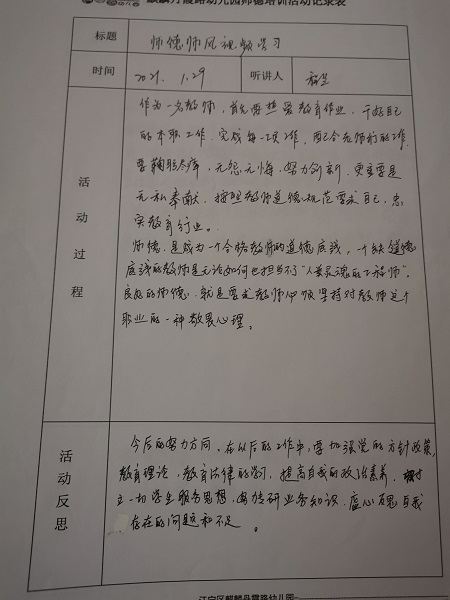 麒麟丹霞路幼儿园师德培训活动记录表
标题 师德师风视频学习
时间 2021.1.29 听讲人
活动过程
作为一名教师，首先要热爱教育作业，干好自己
的本职工作，完成每一项工作，自己今先师行的工作
要鞠躬尽瘁，无怨无悔，努力创新，更重要是
无私奉献，按照教师道德规范要求自己，忠
实教育行业。
师德，是成为一个合格教师的道德底线，一个缺道德
底线的教师是无论如何也担当不了“人类灵魂的工程师”。
良好的师德，就是要求教师必须坚持对教师这个
职业的一种敬畏心理。
活动反思
今后的努力方向，在以后的工作中，要加强党的方针政策，
教育理论，教育法律的学习，提高自我的政治素养，树
立一切学生服务思想，要钻研业务知识，虚心反思自我
存在的问题和不足。
江宁区麒麟丹霞路幼儿园